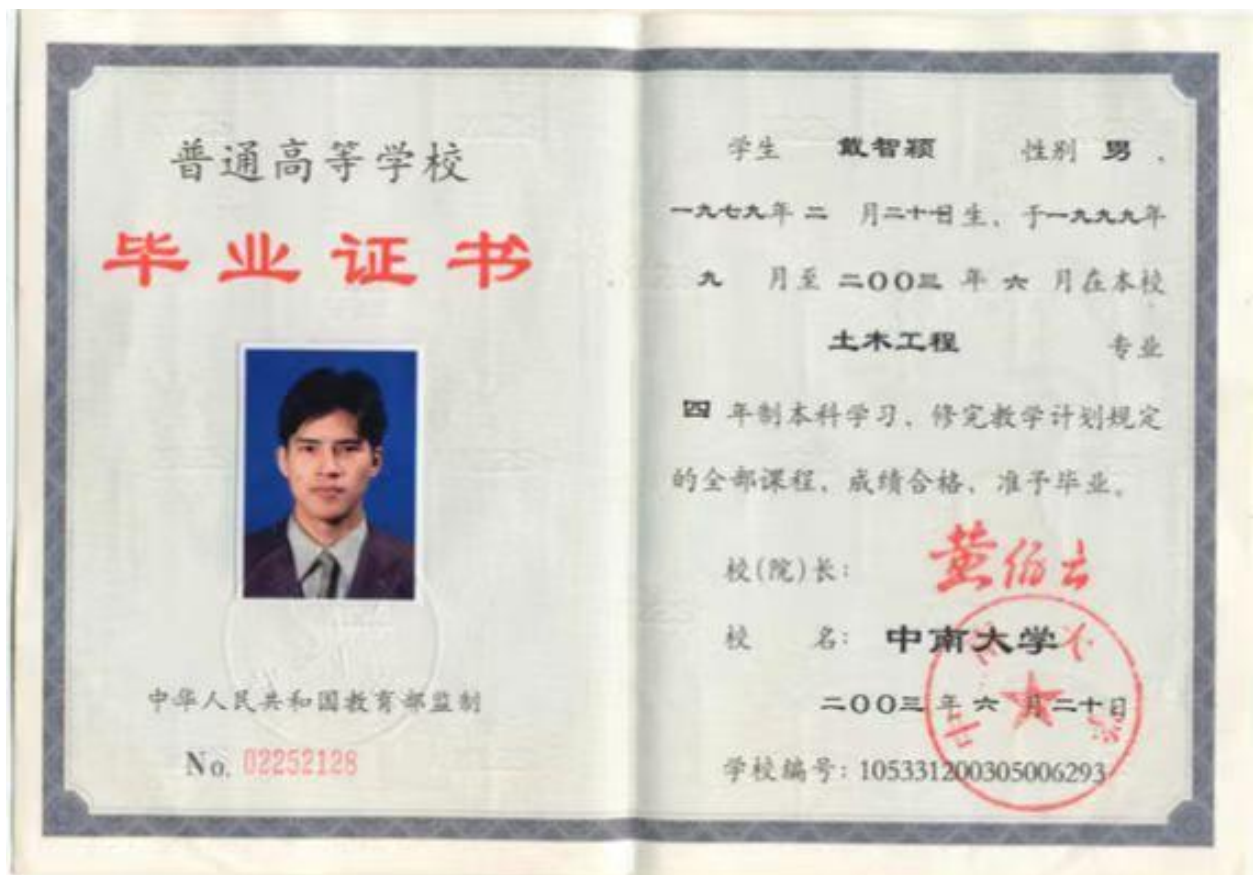 普通高等学校
毕业证书
中华人民共和国教育部监制
No. 02252128
学生 戴智颖 性别 男,
一九七九年 二 月二十日生、于一九九九年
九 月至 二〇〇三 年 六 月在本校
土木工程 专业
四 年制本科学习、修完教学计划规定
的全部课程、成绩合格、准予毕业。
校(院)长: 黄伯云
校 名: 中南大学
二〇〇三 年 六 月二十日
学校编号: 105331200305006293